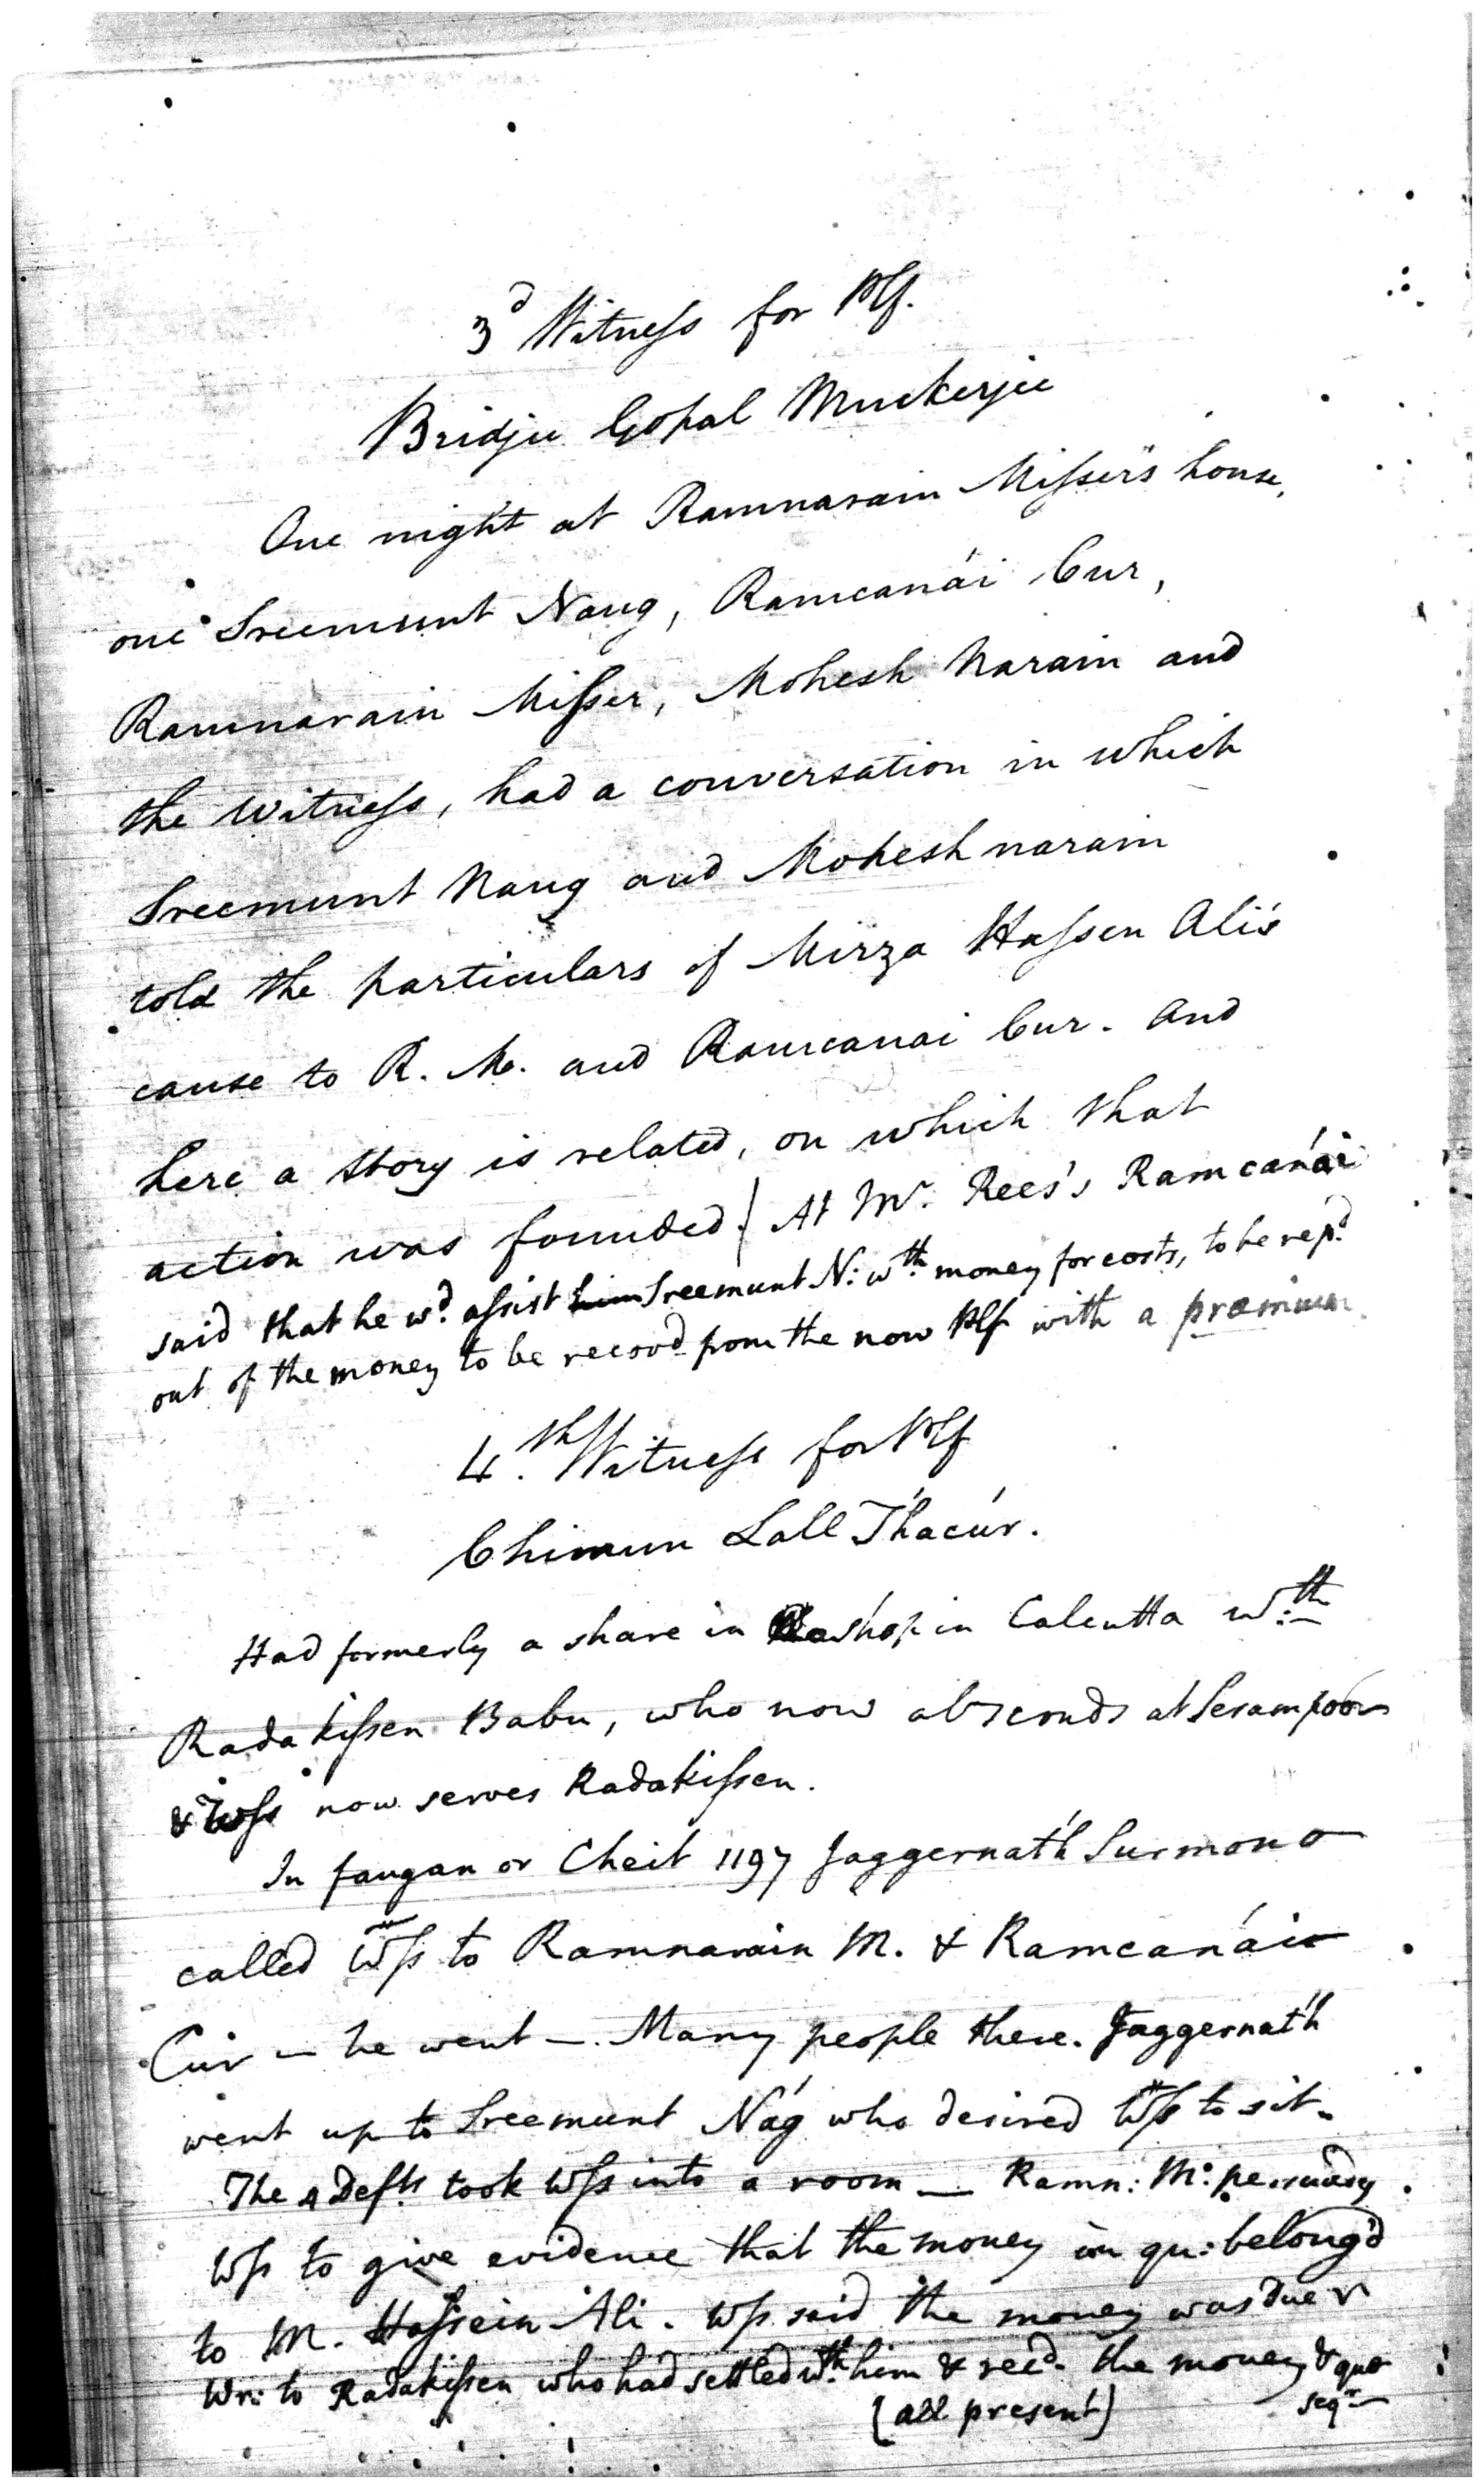 3d Witness for Plf.
Bridju Gopal Muckerjee
One night at Ramnarain Misser's house,
one Sreemunt Naug, Ramcanái Cur,
Ramnarain Misser, Mohesh Narain and
the Witness, had a conversation in which
Sreemunt Naug and Moheshnarain
told the particulars of Mirza Hassen Ali's
cause to R. M. and Ramcanai Cur. and
here a story is related, on which that
action was founded / At Mr. Rees's Ramcanái
said that he wd. assist him Sreemunt N: wth. money for costs, to be rep'd
out of the money to be recovd from the now Plf with a præmium
4.th Witness for Plf
Chimun Lall T'hacúr.
Had formerly a share in a shop in Calcutta w:th
Radakissen Babu, who now absconds at Serampoor
& Wss now serves Radakissen.
In faugan or Cheit 1197 Jaggernat'h Surmono
called Wss to Ramnarain M. & Ramcanái
Cur — he went —. Many people there. Jaggernat'h
went up to Sreemunt Nág who desired Wss to sit.
The 4 Defts took Wss into a room — Ramn: M: persuadg
Wss to give evidence that the money in qu: belong'd
to M. Hossein Ali. Wss said the money was due
to Radakissen who had settled wth. him & recd. the money & quo
(all present) seq: